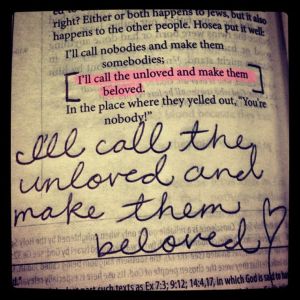 right? Either or both happens to Jews, but it also
happens to the other people. Hosea put it well:
I'll call nobodies and make them
somebodies;
I'll call the unloved and make them
beloved.
In the place where they yelled out, "You're
nobody!"
I'll call the
unloved and
make them
beloved
such texts as Ex 7:3; 9:12; 14:4,17, in which God is said to